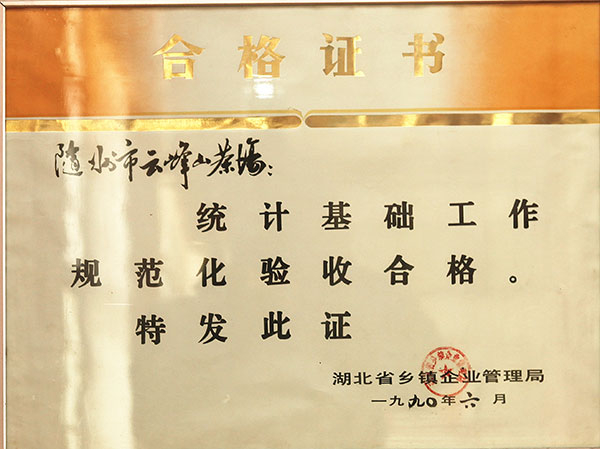 合格证书
随州市云峰山茶场：
统计基础工作
规范化验收合格。
特发此证
湖北省乡镇企业管理局
一九九〇年六月